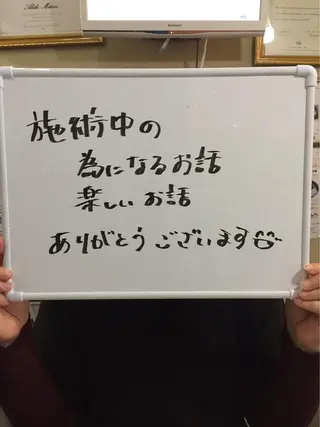 施術中の
為になるお話
楽しい お話
ありがとうございます